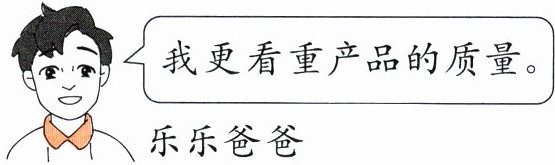 我更看重产品的质量。
乐乐爸爸